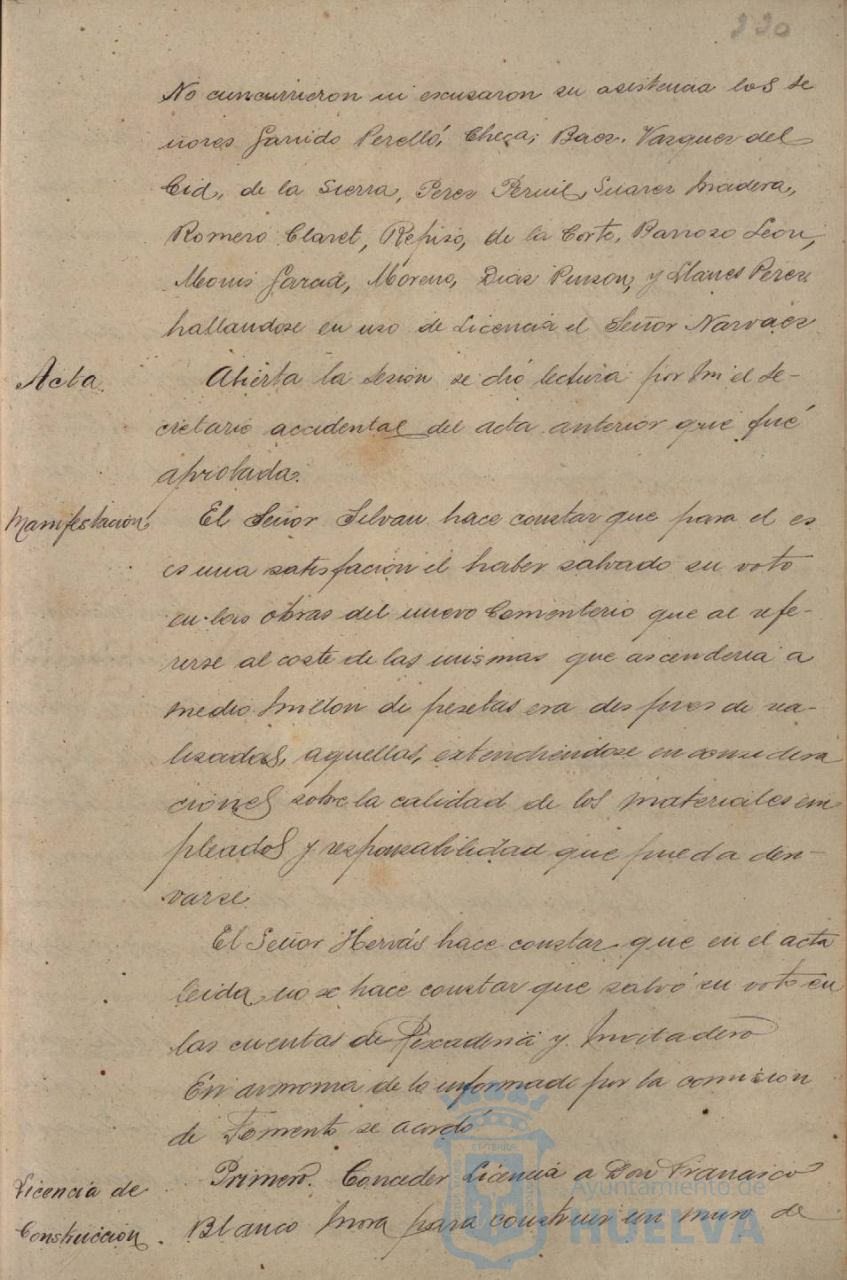 220
No cuncurrieron ni escusaron su asistencia los Se
ñores Garrido Perelló, Checa, Baez, Vazquez del
Cid, de la Sierra, Perez Peruil, Suarez Madera,
Romero Claret, Repiso, de la Corte, Barroso Leon,
Monis Garcia, Moreno, Diaz Pinzon, y Llanes Perez
hallandose en uso de Licencia el Señor Narvaez
Acta. Abierta la Sesion se dió lectura por mi el Se-
cretario accidental del acta anterior que fué
aprobada.
Manifestación El Señor Silvan hace constar que para el es
es una satisfacción el haber salvado su voto
en las obras del nuevo Cementerio que al refe-
rirse al coste de las mismas que ascenderia a
medio millon de pesetas era despues de rea-
lizadas, aquellas, extendiendose en considera
ciones sobre la calidad de los materiales em
pleados y responsabilidad que pueda deri-
varse.
El Señor Hervás hace constar que en el acta
leida no se hace constar que salvó su voto en
las cuentas de Pescaderia y
En armonia de lo informado por la comision
de Fomento se acordó
Licencia de Primero. Conceder Licencia a Don Francisco
Construccion. Blanco Mora para construir un muro de
Ayuntamiento de
HUELVA